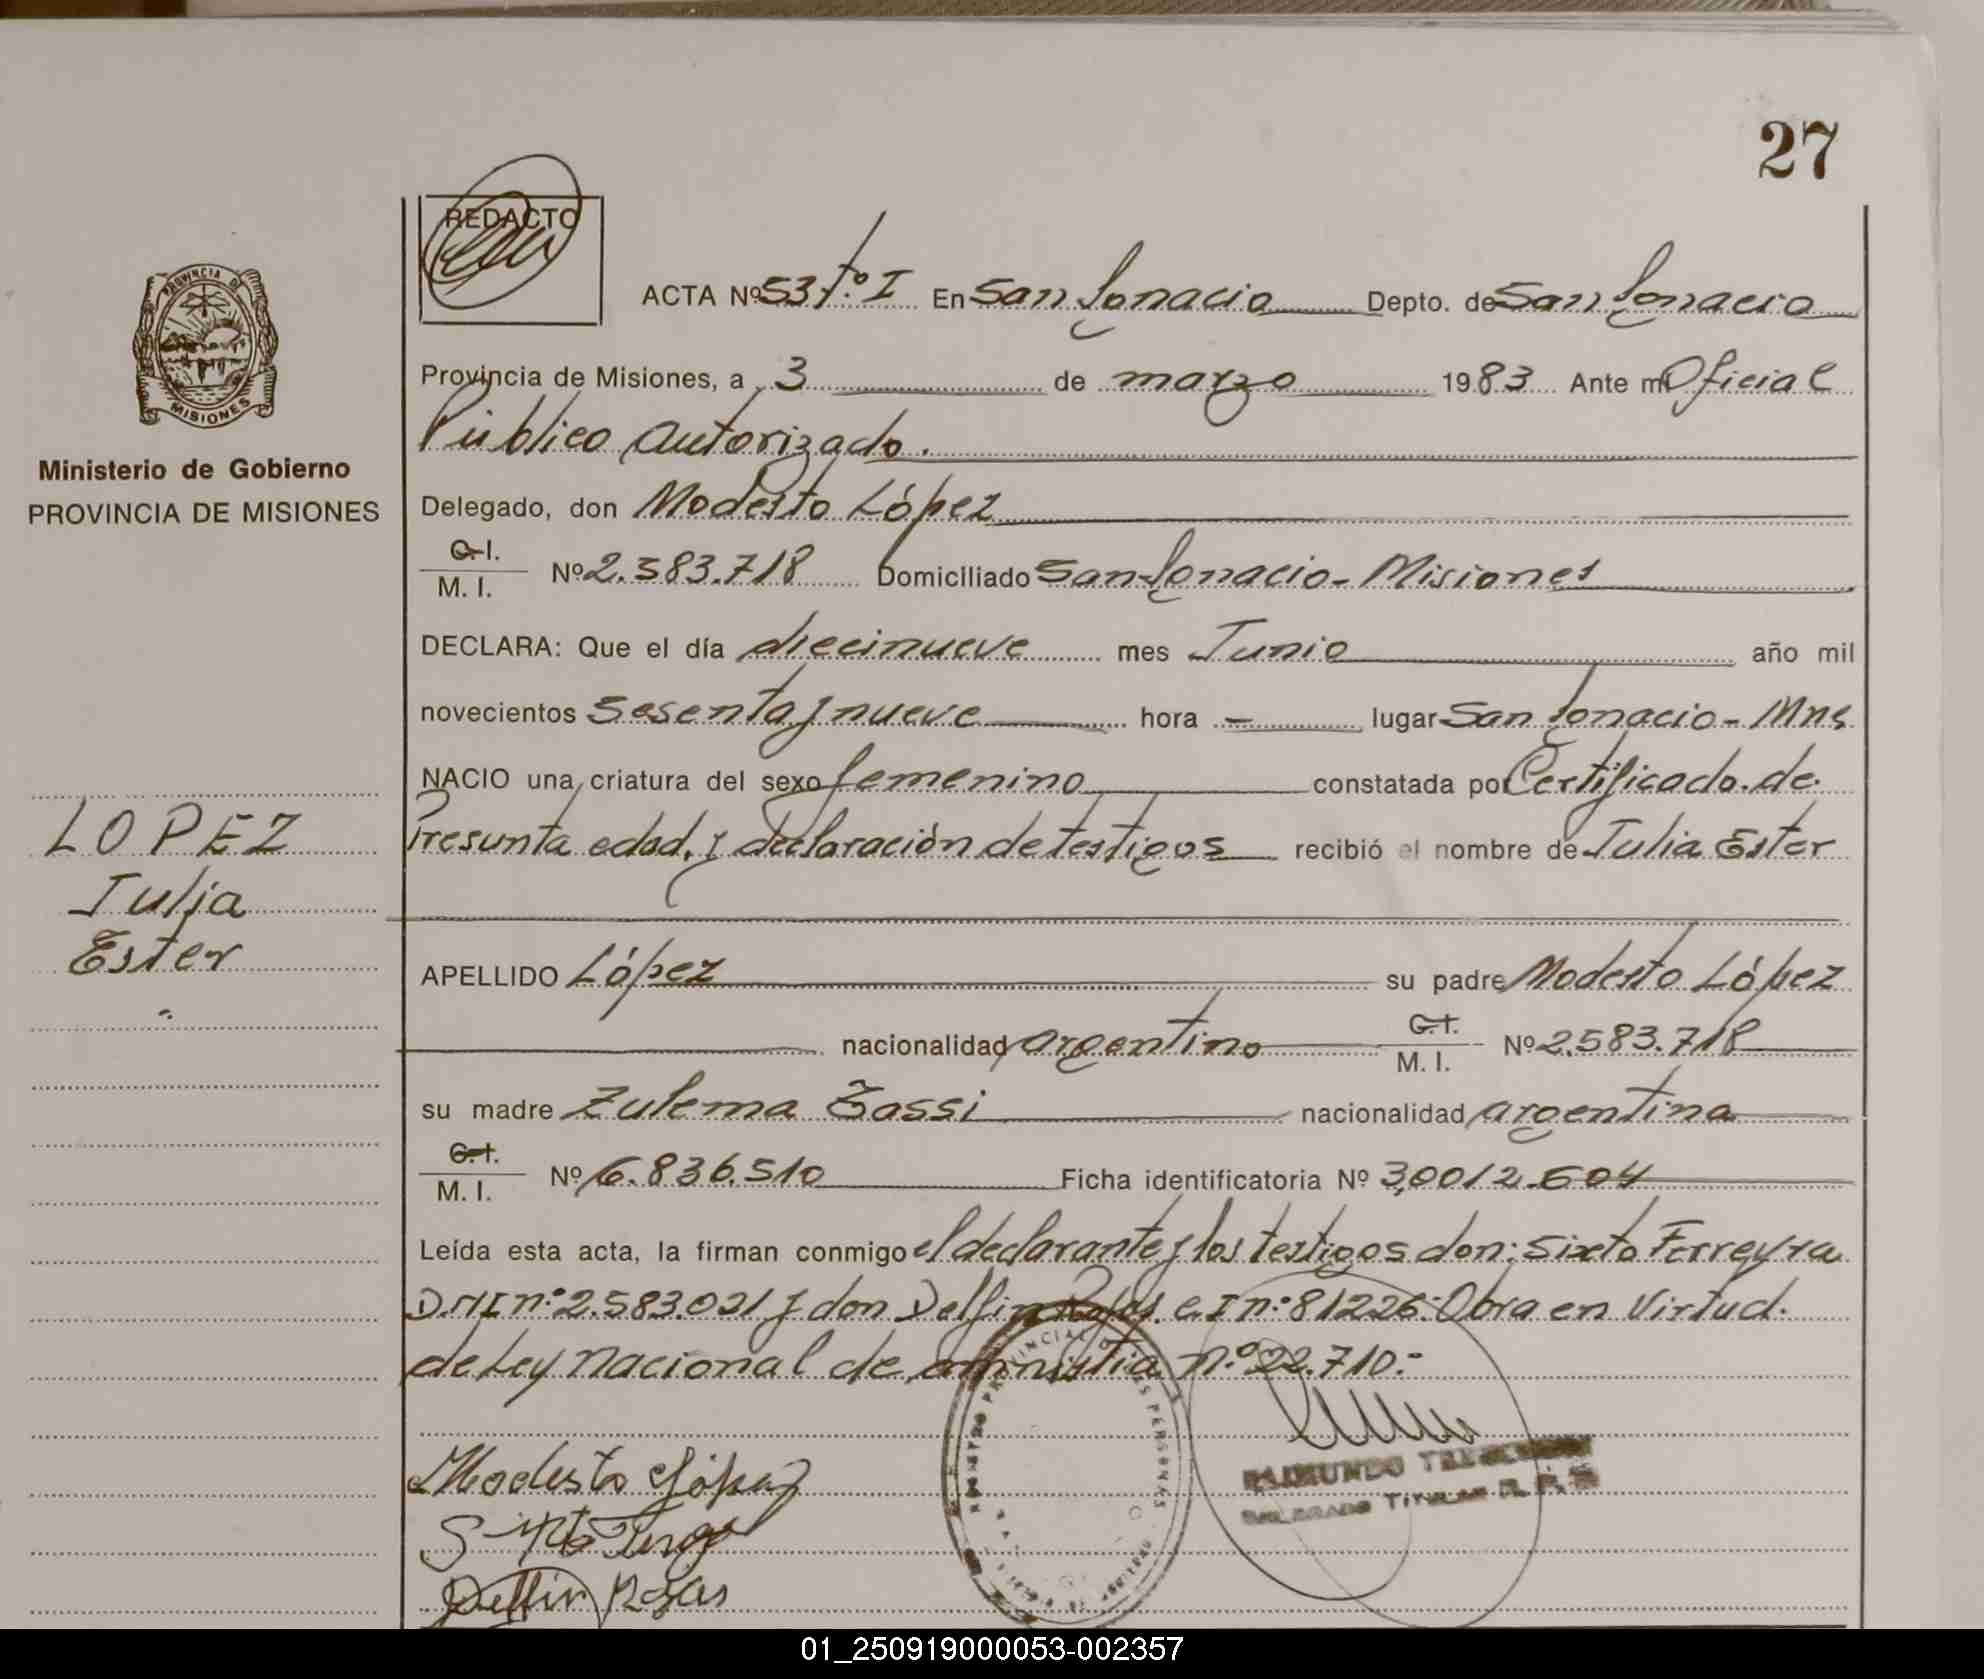 27
REDACTO
ACTA Nº 53 tº I En San Ignacio Depto. de San Ignacio
PROVINCIA DE
MISIONES
Provincia de Misiones, a 3 de marzo 1983 Ante mi Oficial
Público autorizado.
Ministerio de Gobierno
PROVINCIA DE MISIONES
Delegado, don Modesto López
C.I.
M. I. Nº 2.583.718 Domiciliado San Ignacio - Misiones
DECLARA: Que el día diecinueve mes Junio año mil
novecientos sesenta y nueve hora - lugar San Ignacio - Mns
NACIO una criatura del sexo femenino constatada por Certificado de
LOPEZ
Presunta edad y declaración de testigos recibió el nombre de Julia Ester
Julia
Ester
APELLIDO López su padre Modesto López
nacionalidad argentino C.I.
M. I. Nº 2.583.718
su madre Zulema Tassi nacionalidad argentina
C.I.
M. I. Nº 6.836.510 Ficha identificatoria Nº 3,0012.604
Leída esta acta, la firman conmigo el declarante y los testigos don: Sixto Ferreyra
D.M.I nº 2.583.021 y don Delfin Rojas C.I nº 81226: Obra en virtud
de Ley nacional de amnistia nº 22.710.-
Modesto López
Delfin Rojas
REGISTRO PROVINCIAL DE LAS PERSONAS
RAIMUNDO
DELEGADO TITULAR R. P. P.
01_250919000053-002357